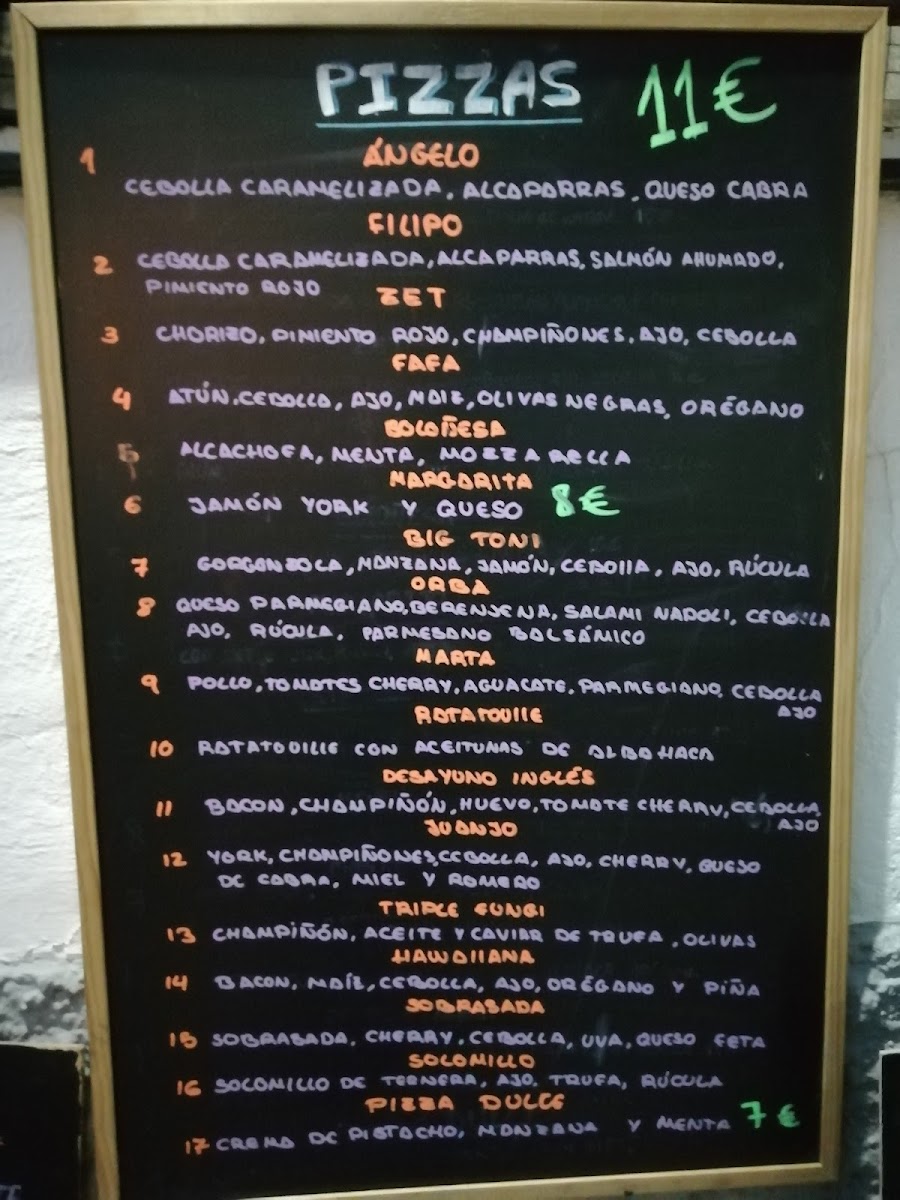 PIZZAS 11€
1 ÁNGELO
CEBOLLA CARAMELIZADA, ALCAPARRAS, QUESO CABRA
FILIPO
2 CEBOLLA CARAMELIZADA, ALCAPARRAS, SALMÓN AHUMADO,
PIMIENTO ROJO
ZET
3 CHORIZO, PIMIENTO ROJO, CHAMPIÑONES, AJO, CEBOLLA
FAFA
4 ATÚN, CEBOLLA, AJO, MAIZ, OLIVAS NEGRAS, ORÉGANO
BOLOÑESA
5 ALCACHOFA, MENTA, MOZZARELLA
MARGARITA
6 JAMÓN YORK Y QUESO 8€
BIG TONI
7 GORGONZOLA, MANZANA, JAMÓN, CEBOLLA, AJO, RÚCULA
ORBA
8 QUESO PARMEGIANO, BERENJENA, SALAMI NAPOLI, CEBOLLA
AJO, RÚCULA, PARMESANO BALSÁMICO
MARTA
9 POLLO, TOMATES CHERRY, AGUACATE, PARMEGIANO, CEBOLLA
AJO
RATATOUILLE
10 RATATOUILLE CON ACEITUNAS DE ALBAHACA
DESAYUNO INGLÉS
11 BACON, CHAMPIÑÓN, HUEVO, TOMATE CHERRY, CEBOLLA,
AJO
JUANJO
12 YORK, CHAMPIÑONES, CEBOLLA, AJO, CHERRY, QUESO
DE CABRA, MIEL Y ROMERO
TRIPLE FUNGI
13 CHAMPIÑÓN, ACEITE Y CAVIAR DE TRUFA, OLIVAS
HAWAIIANA
14 BACON, MAÍZ, CEBOLLA, AJO, ORÉGANO Y PIÑA
SOBRASADA
15 SOBRASADA, CHERRY, CEBOLLA, UVA, QUESO FETA
SOLOMILLO
16 SOLOMILLO DE TERNERA, AJO, TRUFA, RÚCULA
PIZZA DULCE
17 CREMA DE PISTACHO, MANZANA Y MENTA 7€